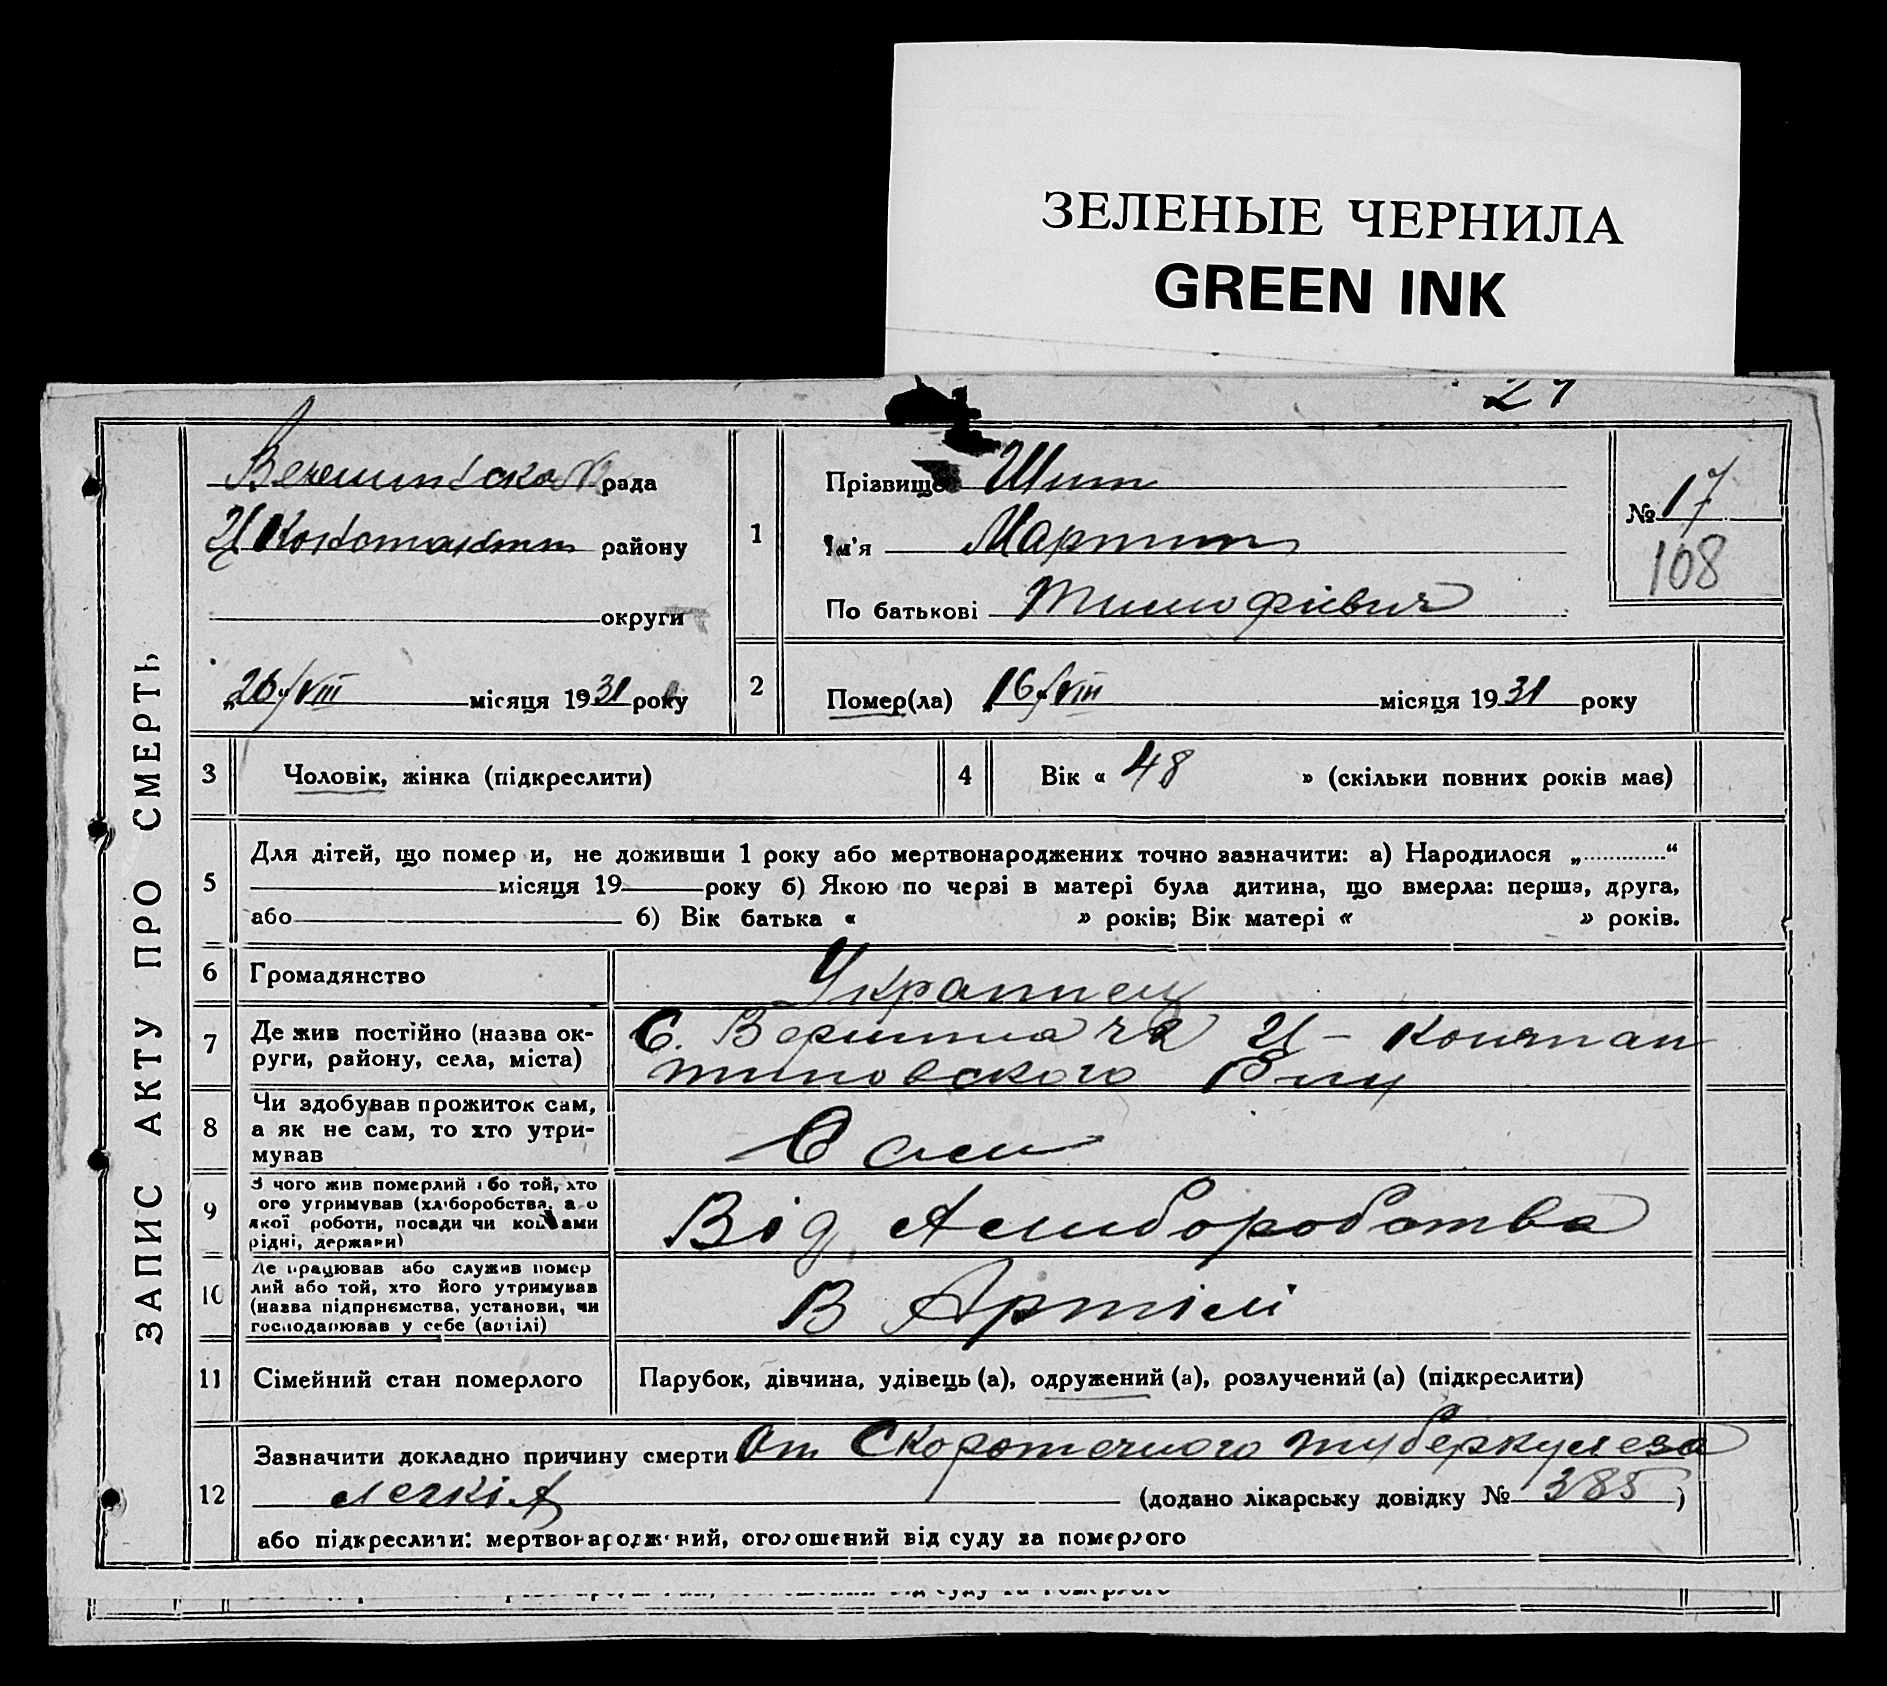 ЗЕЛЕНЫЕ ЧЕРНИЛА
GREEN INK
ЗАПИС АКТУ ПРО СМЕРТЬ
рада
району
округи
„26/VIII місяця 1931 року
1
Прізвище Шит
Ім'я Мартин
По батькові Тимофієвич
№ 17
108
2
Помер(ла) „16/VIII місяця 1931 року
3
Чоловік, жінка (підкреслити)
4
Вік « 48 » (скільки повних років має)
5
Для дітей, що помер и, не доживши 1 року або мертвонароджених точно зазначити: а) Народилося „ “
місяця 19 року б) Якою по черзі в матері була дитина, що вмерла: перша, друга,
або б) Вік батька « » років; Вік матері « » років.
6
Громадянство
Украинец
7
Де жив постійно (назва ок-
руги, району, села, міста)
С. И-Констан
тиновского
8
Чи здобував прожиток сам,
а як не сам, то хто утри-
мував
Сам
9
З чого жив померлий або той, хто
ого утримував (хліборобства, а о
якої роботи, посади чи коштами
рідні, держави)
Від Хлиборобства
10
Де працював або служив помер
лий або той, хто його утримував
(назва підприємства, установи, чи
господарював у себе (артілі)
В Артілі
11
Сімейний стан померлого
Парубок, дівчина, удівець (а), одружений (а), розлучений (а) (підкреслити)
12
Зазначити докладно причину смерти От Скоротечного туберкулеза
легкіх (додано лікарську довідку № 385)
або підкреслити: мертвонароджений, оголошений від суду за померлого